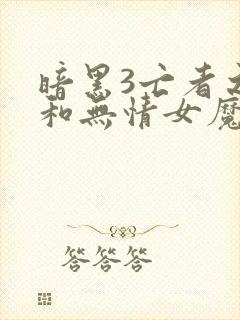 暗黑3亡者之
和無情女魔
答答答